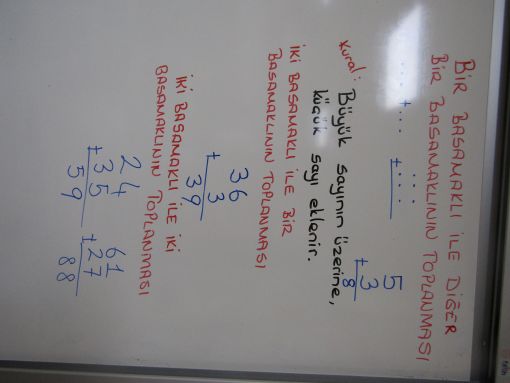 BİR BASAMAKLI İLE DİĞER
BİR BASAMAKLININ TOPLANMASI
.... + ...
....
+ ...
5
+ 3
8
Kural: Büyük sayının üzerine,
küçük sayı eklenir.
İKİ BASAMAKLI İLE BİR
BASAMAKLININ TOPLANMASI
36
+ 3
39
İKİ BASAMAKLI İLE İKİ
BASAMAKLININ TOPLANMASI
24
+35
59
61
+27
88